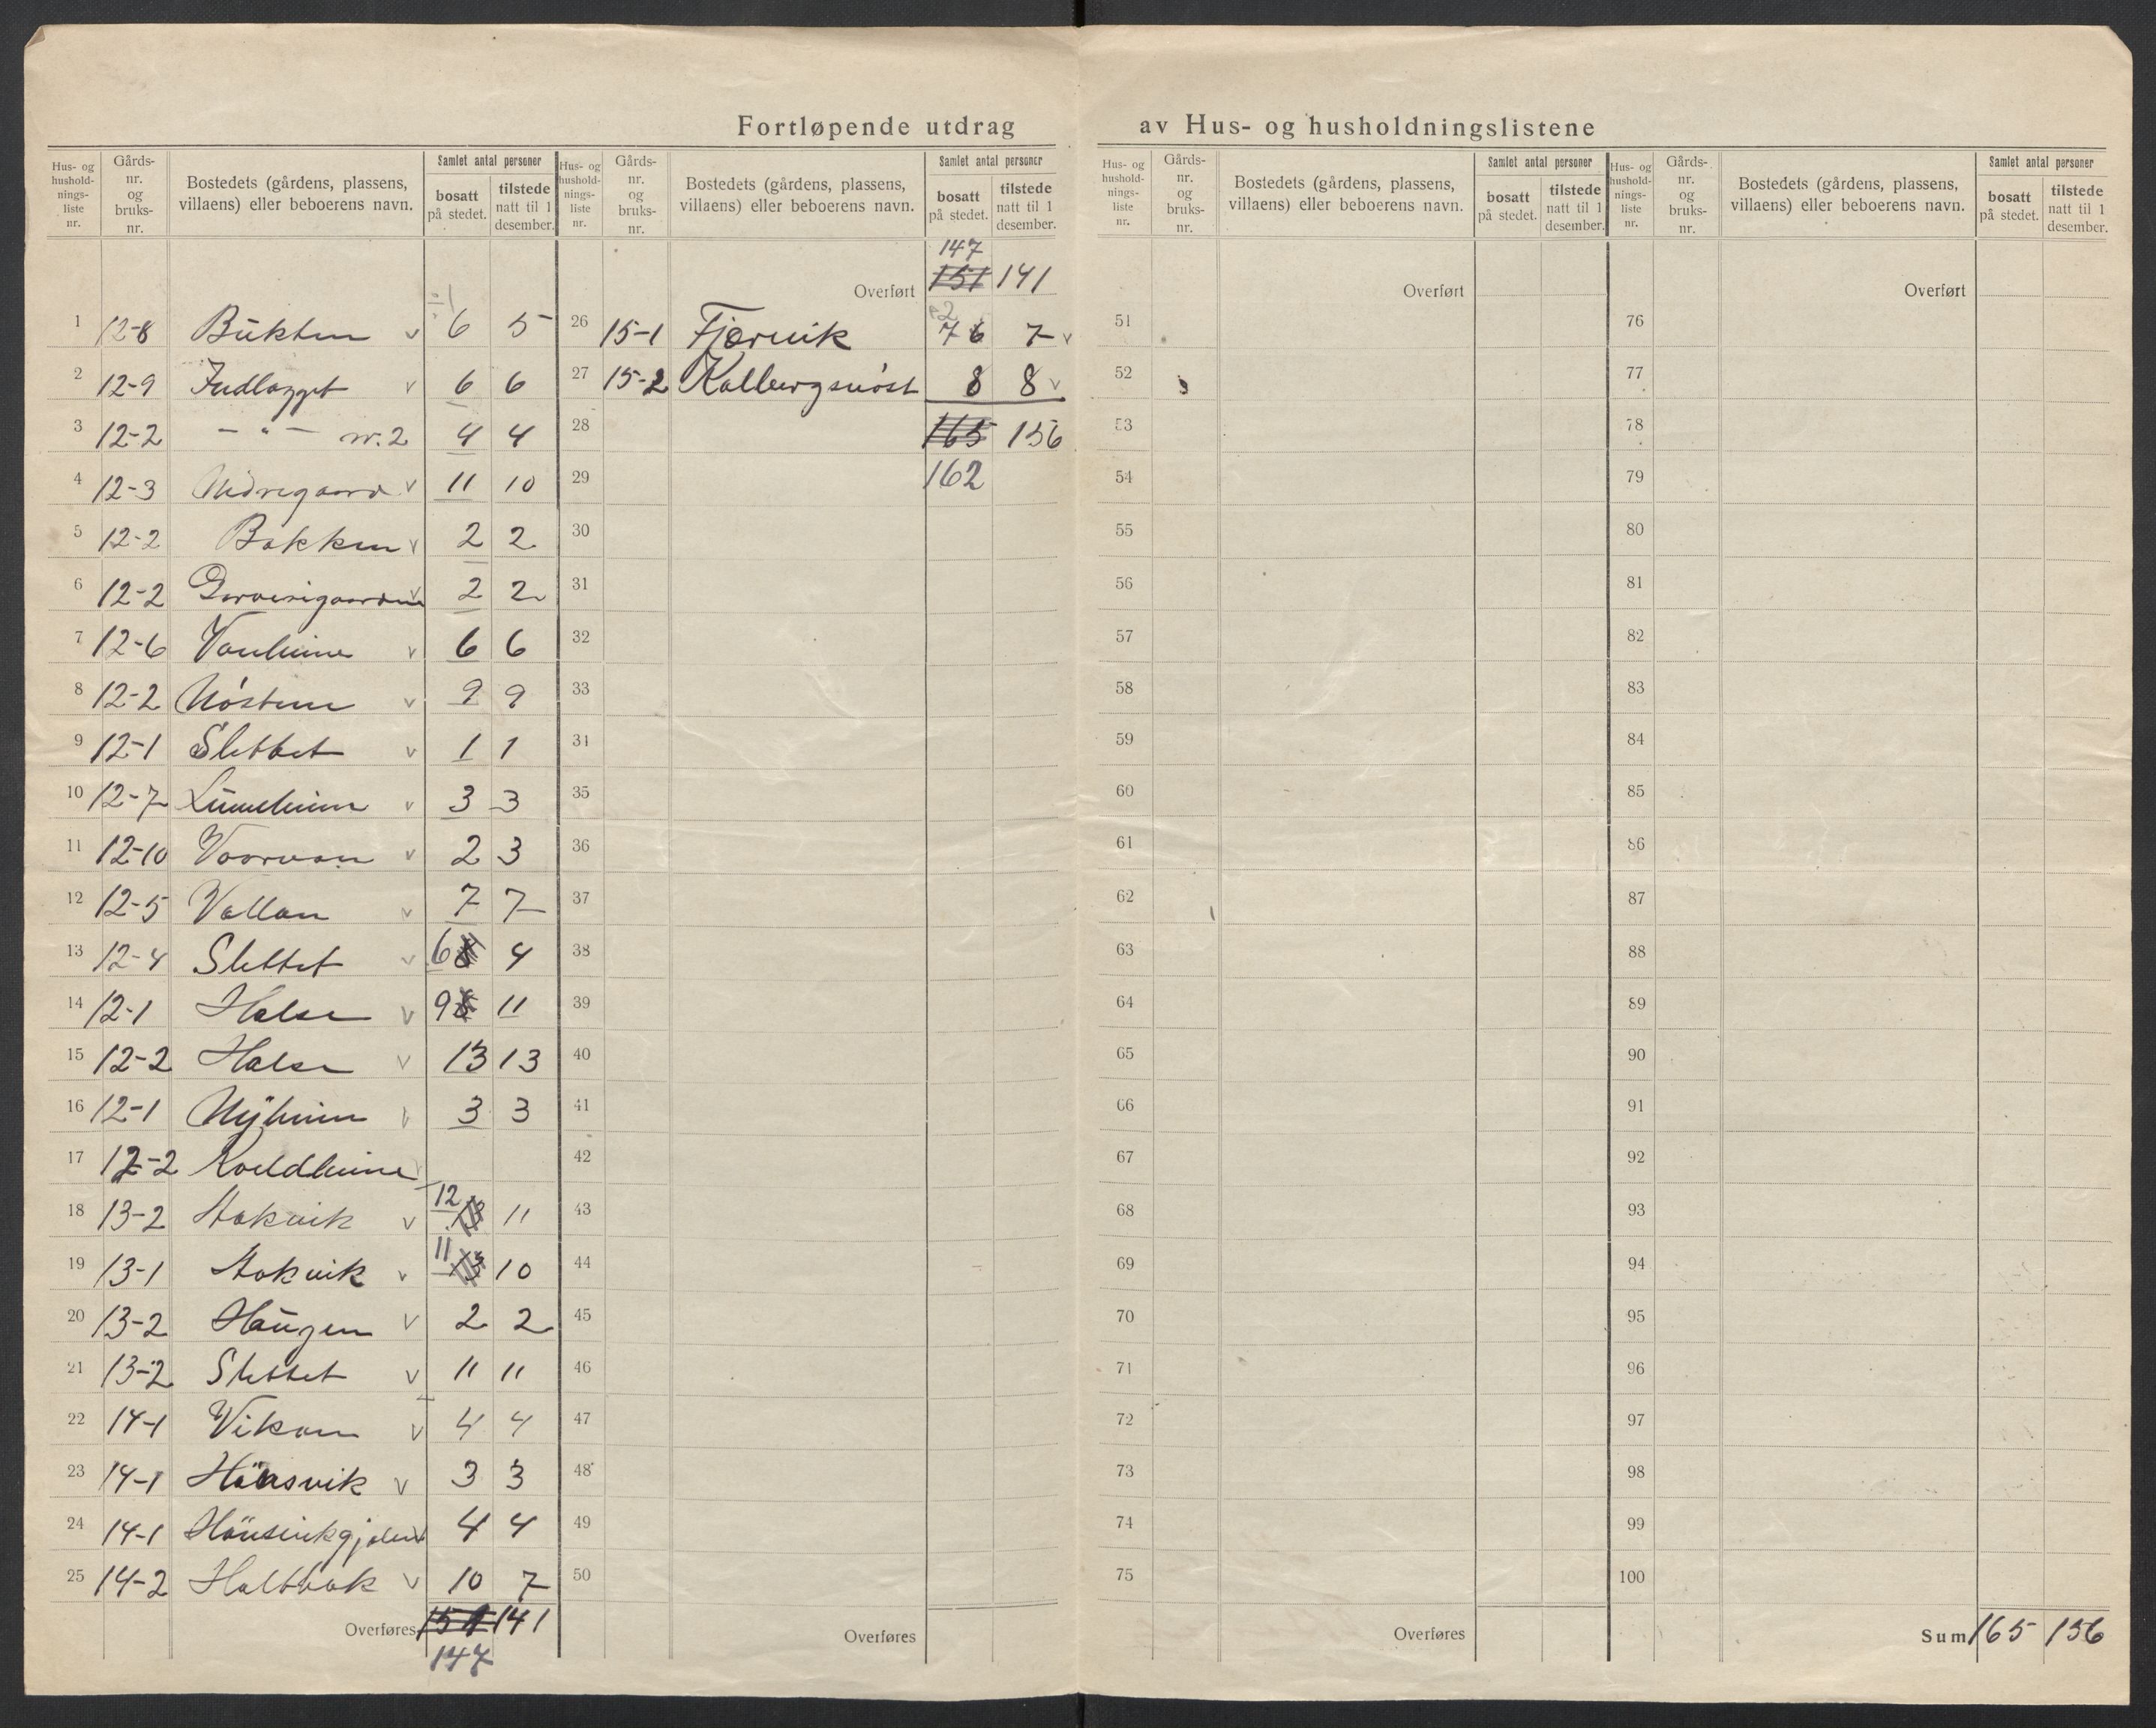 Fortløpende utdrag av Hus- og husholdningslistene
Hus- og hushold-nings-liste nr. | Gårds-nr. og bruks-nr. | Bostedets (gårdens, plassens, villaens) eller beboerens navn. | Samlet antal personer | bosatt på stedet. | tilstede natt til 1 desember.
1 12-8 Bukten v 6 5
2 12-9 Indlægget v 6 6
3 12-2 — " — nr. 2 4 4
4 12-3 Nedregaard v 11 10
5 12-2 Bakken v 2 2
6 12-2 v 2 2
7 12-6 Vonheim v 6 6
8 12-2 Nøsten v 9 9
9 12-1 Slettet v 1 1
10 12-7 v 3 3
11 12-10 v 2 3
12 12-5 Vollan v 7 7
13 12-4 Slettet v 6 8 4
14 12-1 Halse v 9 8 11
15 12-2 Halse v 13 13
16 12-1 Nyheim v 3 3
17 12-2 Kveldheim
18 13-2 v 12 13 11
19 13-1 v 11 13 10
20 13-2 Haugen v 2 2
21 13-2 Slettet v 11 11
22 14-1 Vikan v 4 4
23 14-1 Hønsvik v 3 3
24 14-1 4 4
25 14-2 v 10 7
Overføres 151 141
147
Hus- og hushold-nings-liste nr. | Gårds-nr. og bruks-nr. | Bostedets (gårdens, plassens, villaens) eller beboerens navn. | Samlet antal personer | bosatt på stedet. | tilstede natt til 1 desember.
147
Overført 151 141
26 15-1 Fjærvik 7 6 7 v
27 15-2 8 8 v
28 165 156
29 162
30
31
32
33
34
35
36
37
38
39
40
41
42
43
44
45
46
47
48
49
50
Overføres
Hus- og hushold-nings-liste nr. | Gårds-nr. og bruks-nr. | Bostedets (gårdens, plassens, villaens) eller beboerens navn. | Samlet antal personer | bosatt på stedet. | tilstede natt til 1 desember.
Overført
51
52
53
54
55
56
57
58
59
60
61
62
63
64
65
66
67
68
69
70
71
72
73
74
75
Overføres
Hus- og hushold-nings-liste nr. | Gårds-nr. og bruks-nr. | Bostedets (gårdens, plassens, villaens) eller beboerens navn. | Samlet antal personer | bosatt på stedet. | tilstede natt til 1 desember.
Overført
76
77
78
79
80
81
82
83
84
85
86
87
88
89
90
91
92
93
94
95
96
97
98
99
100
Sum 165 156